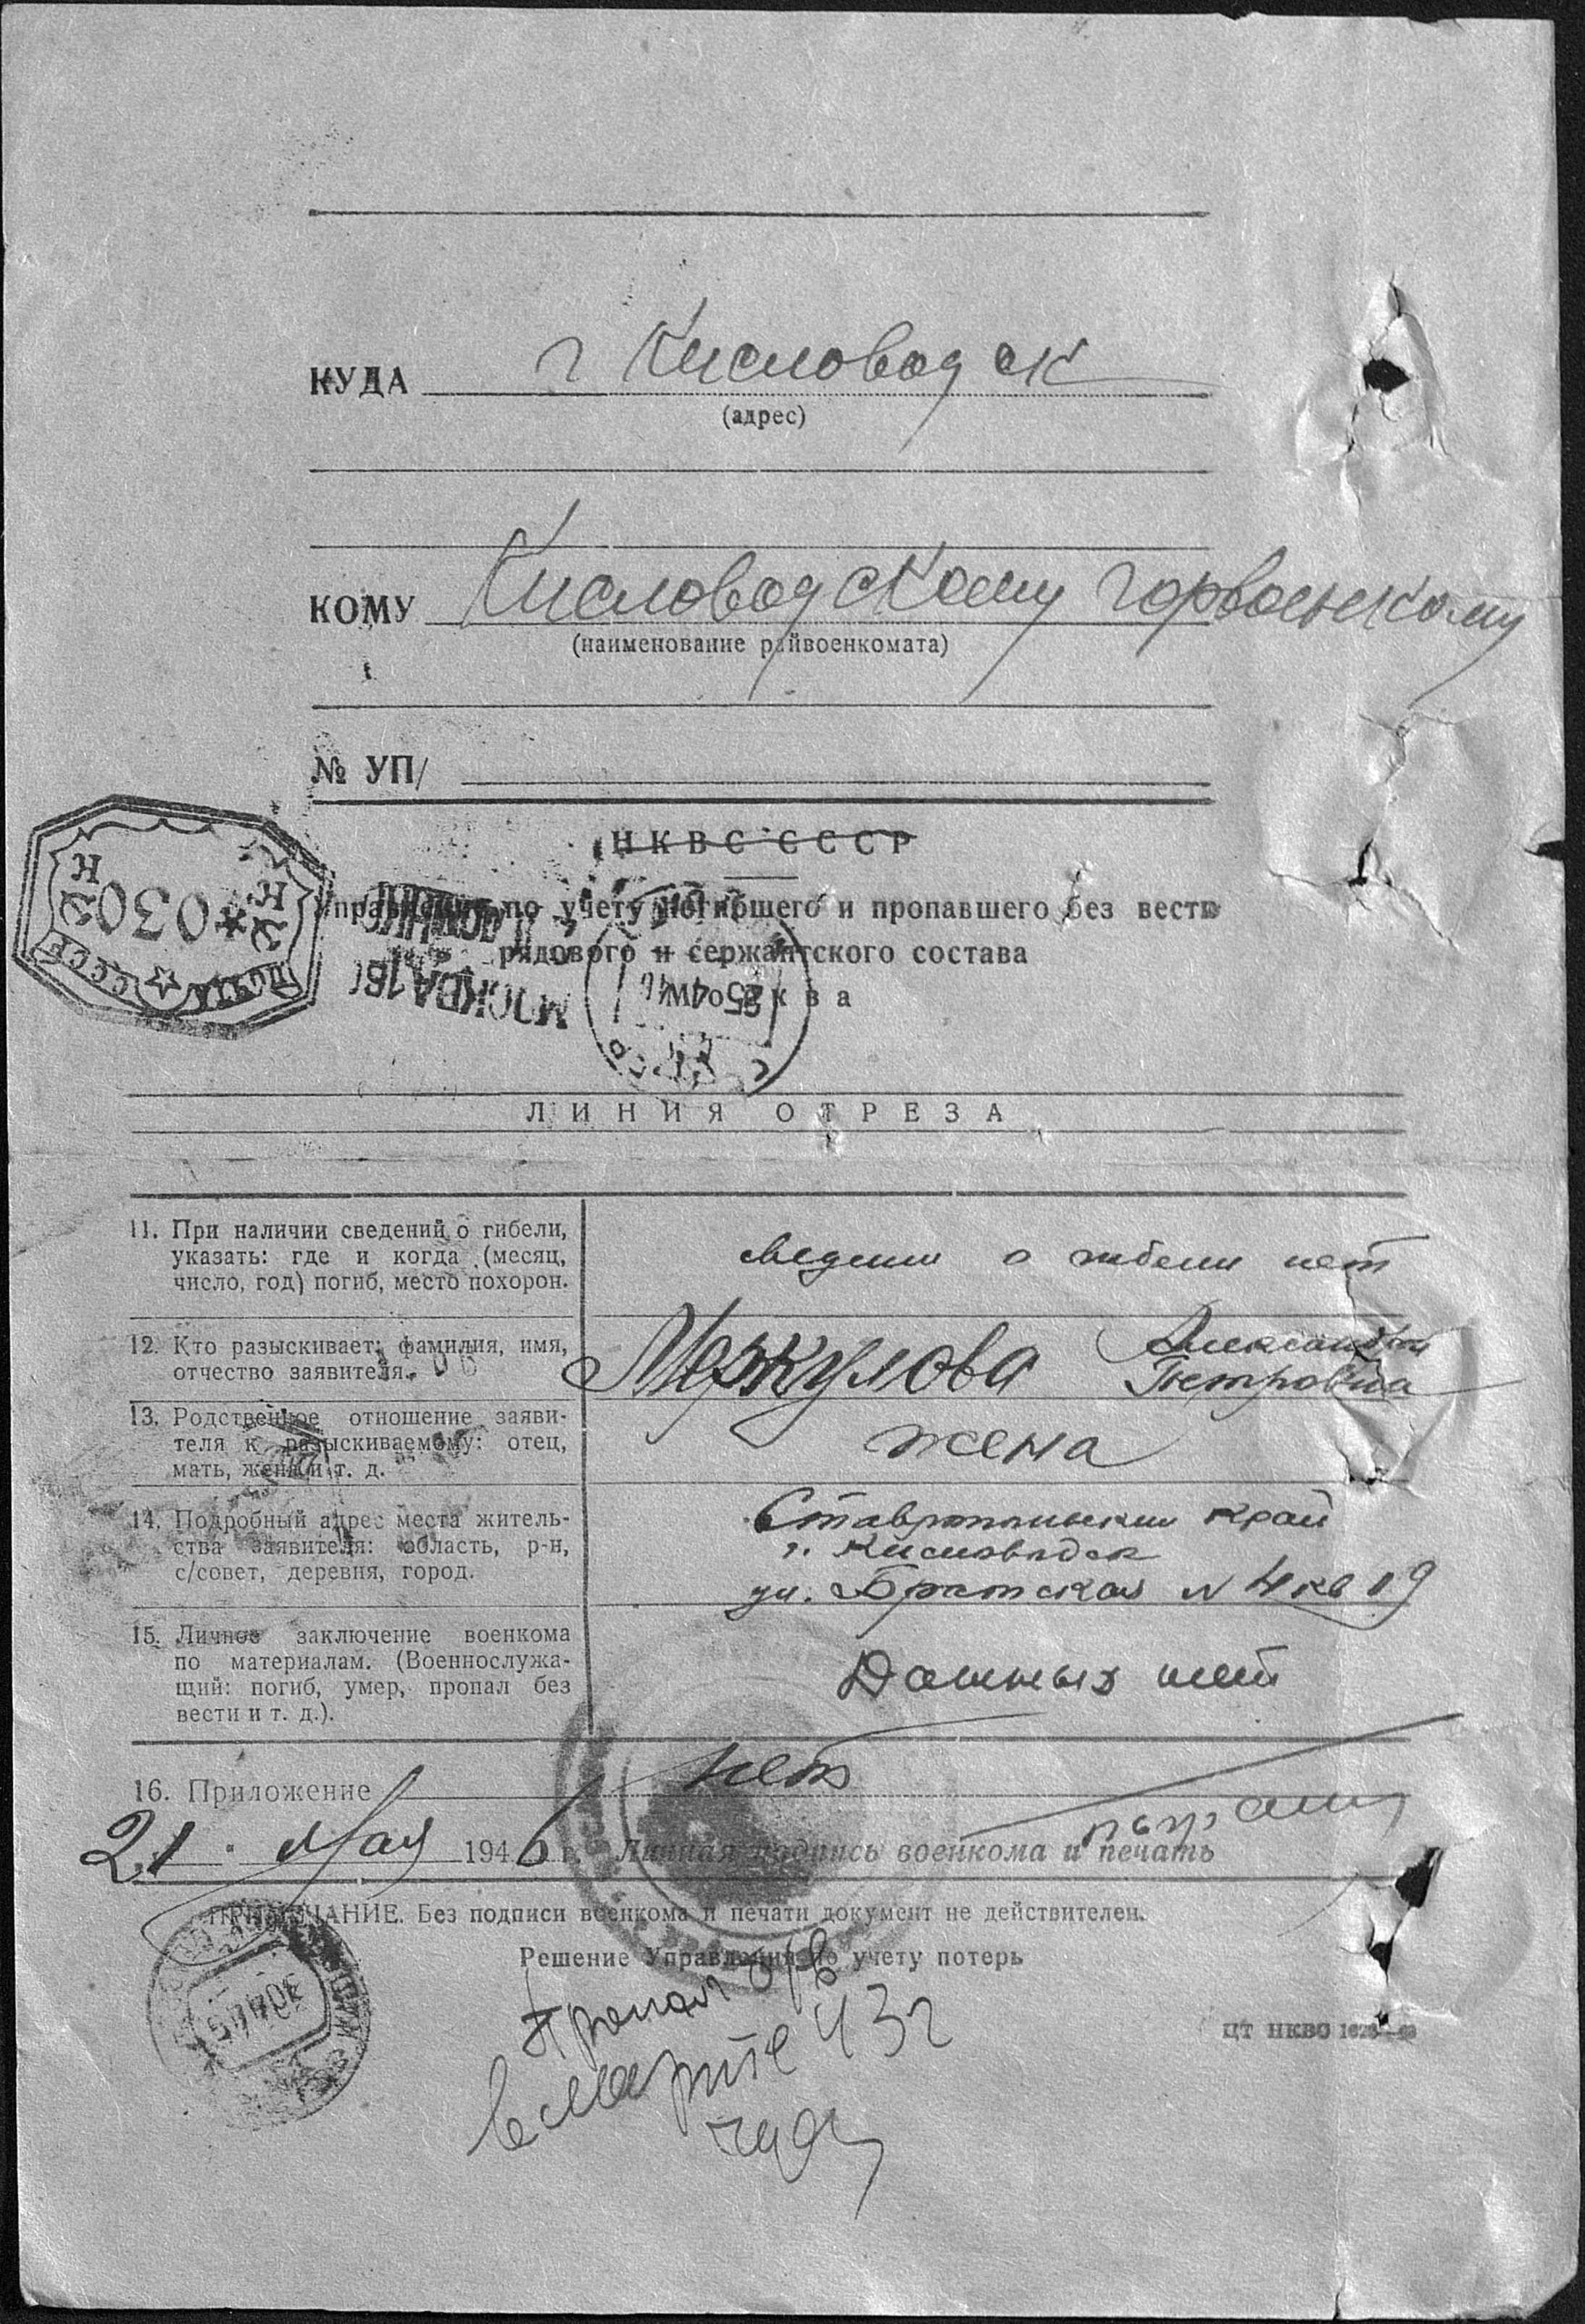 КУДА г Кисловодск
(адрес)
КОМУ Кисловодскому Горвоенкому
(наименование райвоенкомата)
№ УП/
НКВС СССР
Управление по учету погибшего и пропавшего без вести
рядового и сержантского состава
Москва
МОСКВА
ПОЧТА СССР
030
К К
25 4 46
ЛИНИЯ ОТРЕЗА
11. При наличии сведений о гибели,
указать: где и когда (месяц,
число, год) погиб, место похорон.
сведении о гибели нет
12. Кто разыскивает: фамилия, имя,
отчество заявителя.
Меркулова Александра
Петровна
13. Родственное отношение заяви-
теля к разыскиваемому: отец,
мать, жена и т. д.
жена
14. Подробный адрес места житель-
ства заявителя: область, р-н,
с/совет, деревня, город.
Ставропольский край
г. Кисловодск
ул. Братская N 4 кв 19
15. Личное заключение военкома
по материалам. (Военнослужа-
щий: погиб, умер, пропал без
вести и т. д.).
Данных нет
16. Приложение нет
21. Мая 1946 г. Личная подпись военкома и печать
ПРИМЕЧАНИЕ. Без подписи военкома и печати документ не действителен.
Решение Управления по учету потерь
Пропал б/в
в марте 43 г
ЦТ НКВО